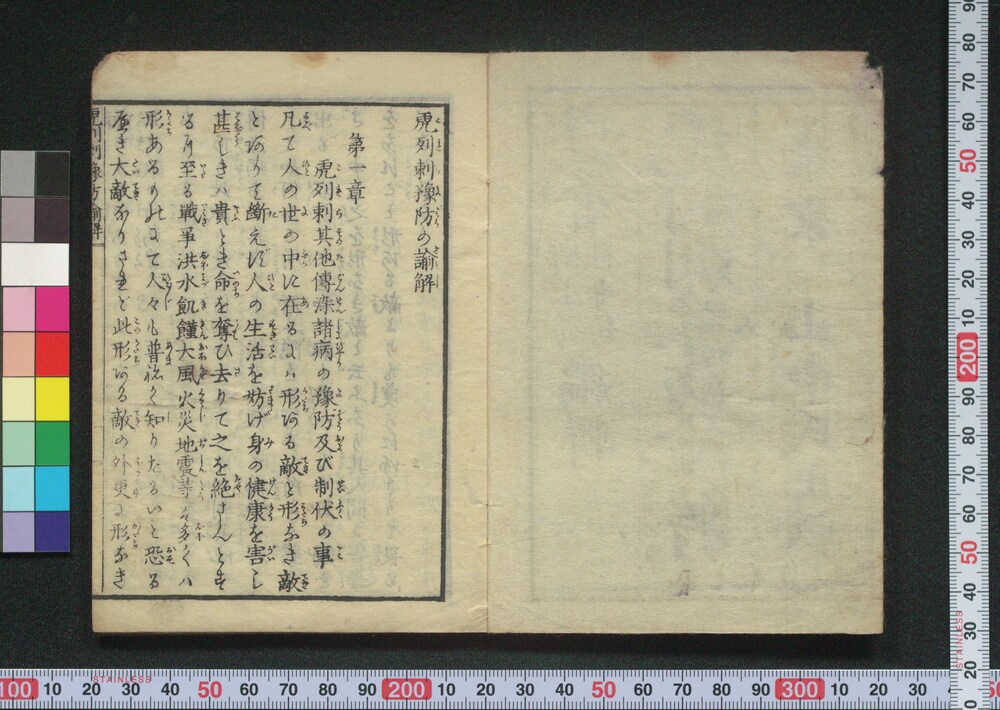 虎列剌豫防の諭解
第一章
虎列剌其他傳染諸病の豫防及び制伏の事
凡て人の世の中に在るには形ある敵と形なき敵
とありて斷えず人の生活を妨げ身の健康を害し
甚しきハ貴とき命を奪ひ去りて之を絶さんとす
るに至る戰爭洪水飢饉大風火災地震等を多くハ
形あるものにて人々も普ねく知りたるいと恐る
べき大敵なりされど此形ある敵の外更に形なき
虎列剌豫防諭解
STAINLESS
100 10 20 30 40 50 60 70 80 90 200 10 20 30 40 50 60 70 80 90 300 10 20 30
STAINLESS
90 80 70 60 50 40 30 20 10 200 90 80 70 60 50 40 30 20 10 0